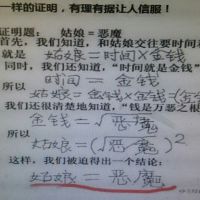 一样的证明，有理有据让人信服！
证明题：姑娘=恶魔
首先，我们知道，和姑娘交往要时间和
就是 姑娘=时间×金钱
同时，我们还知道，“时间就是金钱”
时间=金钱
所以
姑娘=金钱×金钱=(金
我们还很清楚地知道，“钱是万恶之
金钱=√恶魔
所以
姑娘=(√恶魔)²
这样，我们被迫得出一个结论：
姑娘=恶魔